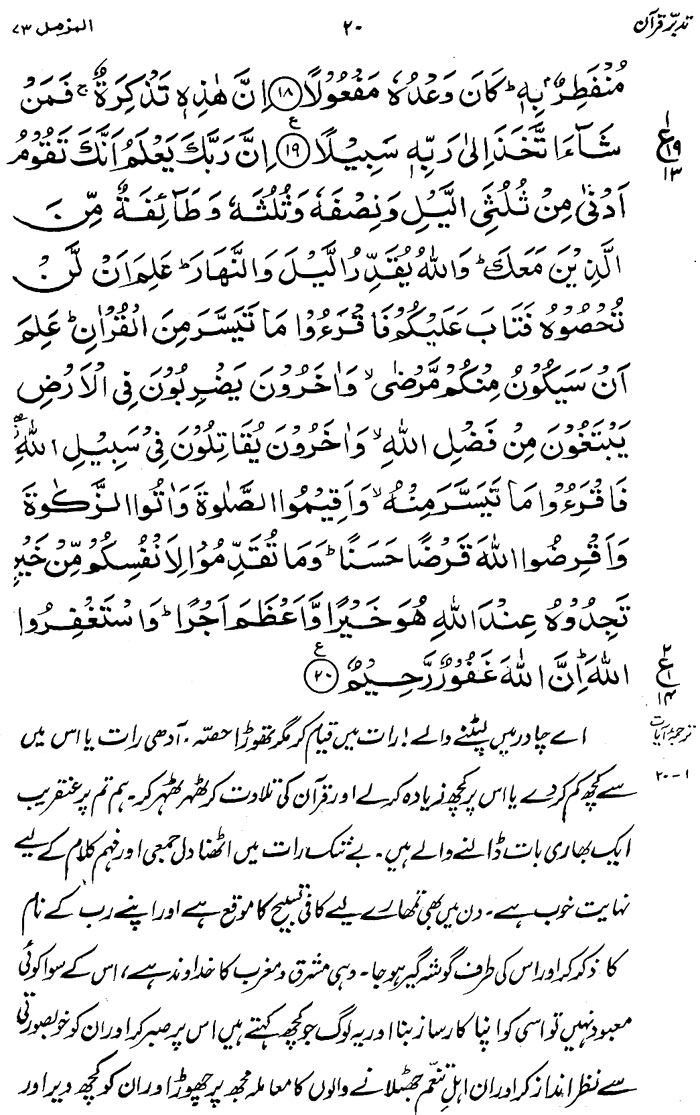 تدبّرِ قرآن ۲۰ المزمل ۷۳
مُنْفَطِرٌۢ بِهٖ ؕ كَانَ وَعْدُهٗ مَفْعُوْلًا ﴿۱۸﴾ اِنَّ هٰذِهٖ تَذْكِرَةٌ ۚ فَمَنْ
شَآءَ اتَّخَذَ اِلٰى رَبِّهٖ سَبِيْلًا ﴿۱۹﴾ ع اِنَّ رَبَّكَ يَعْلَمُ اَنَّكَ تَقُوْمُ
۱ ع ۱۹ ۱۳
اَدْنٰى مِنْ ثُلُثَيِ الَّيْلِ وَنِصْفَهٗ وَثُلُثَهٗ وَطَآئِفَةٌ مِّنَ
الَّذِيْنَ مَعَكَ ؕ وَاللّٰهُ يُقَدِّرُ الَّيْلَ وَالنَّهَارَ ؕ عَلِمَ اَنْ لَّنْ
تُحْصُوْهُ فَتَابَ عَلَيْكُمْ فَاقْرَءُوْا مَا تَيَسَّرَ مِنَ الْقُرْاٰنِ ؕ عَلِمَ
اَنْ سَيَكُوْنُ مِنْكُمْ مَّرْضٰى ۙ وَاٰخَرُوْنَ يَضْرِبُوْنَ فِى الْاَرْضِ
يَبْتَغُوْنَ مِنْ فَضْلِ اللّٰهِ ۙ وَاٰخَرُوْنَ يُقَاتِلُوْنَ فِىْ سَبِيْلِ اللّٰهِ ۖ
فَاقْرَءُوْا مَا تَيَسَّرَ مِنْهُ ۙ وَاَقِيْمُوا الصَّلٰوةَ وَاٰتُوا الزَّكٰوةَ
وَاَقْرِضُوا اللّٰهَ قَرْضًا حَسَنًا ؕ وَمَا تُقَدِّمُوْا لِاَنْفُسِكُمْ مِّنْ خَيْرٍ
تَجِدُوْهُ عِنْدَ اللّٰهِ هُوَ خَيْرًا وَّاَعْظَمَ اَجْرًا ؕ وَاسْتَغْفِرُوا
اللّٰهَ ؕ اِنَّ اللّٰهَ غَفُوْرٌ رَّحِيْمٌ ﴿۲۰﴾ ع
۲ ع ۱ ۱۴
ترجمۂ آیات
۱-۲۰
اے چادر میں لپٹنے والے! رات میں قیام کر مگر تھوڑا حصّہ۔ آدھی رات یا اس میں
سے کچھ کم کر دے یا اس پر کچھ زیادہ کر لے اور قرآن کی تلاوت کر ٹھہر ٹھہر کر۔ ہم تم پر عنقریب
ایک بھاری بات ڈالنے والے ہیں۔ بے شک رات میں اٹھنا دل جمعی اور فہم کلام کے لیے
نہایت خوب ہے۔ دن میں بھی تمھارے لیے کافی تسبیح کا موقع ہے اور اپنے رب کے نام
کا ذکر کر اور اس کی طرف گوشہ گیر ہو جا۔ وہی مشرق و مغرب کا خداوند ہے، اس کے سوا کوئی
معبود نہیں تو اسی کو اپنا کارساز بنا اور یہ لوگ جو کچھ کہتے ہیں اس پر صبر کر اور ان کو خوبصورتی
سے نظر انداز کر اور ان اہلِ تنعّم جھٹلانے والوں کا معاملہ مجھ پر چھوڑ اور ان کو کچھ دیر اور